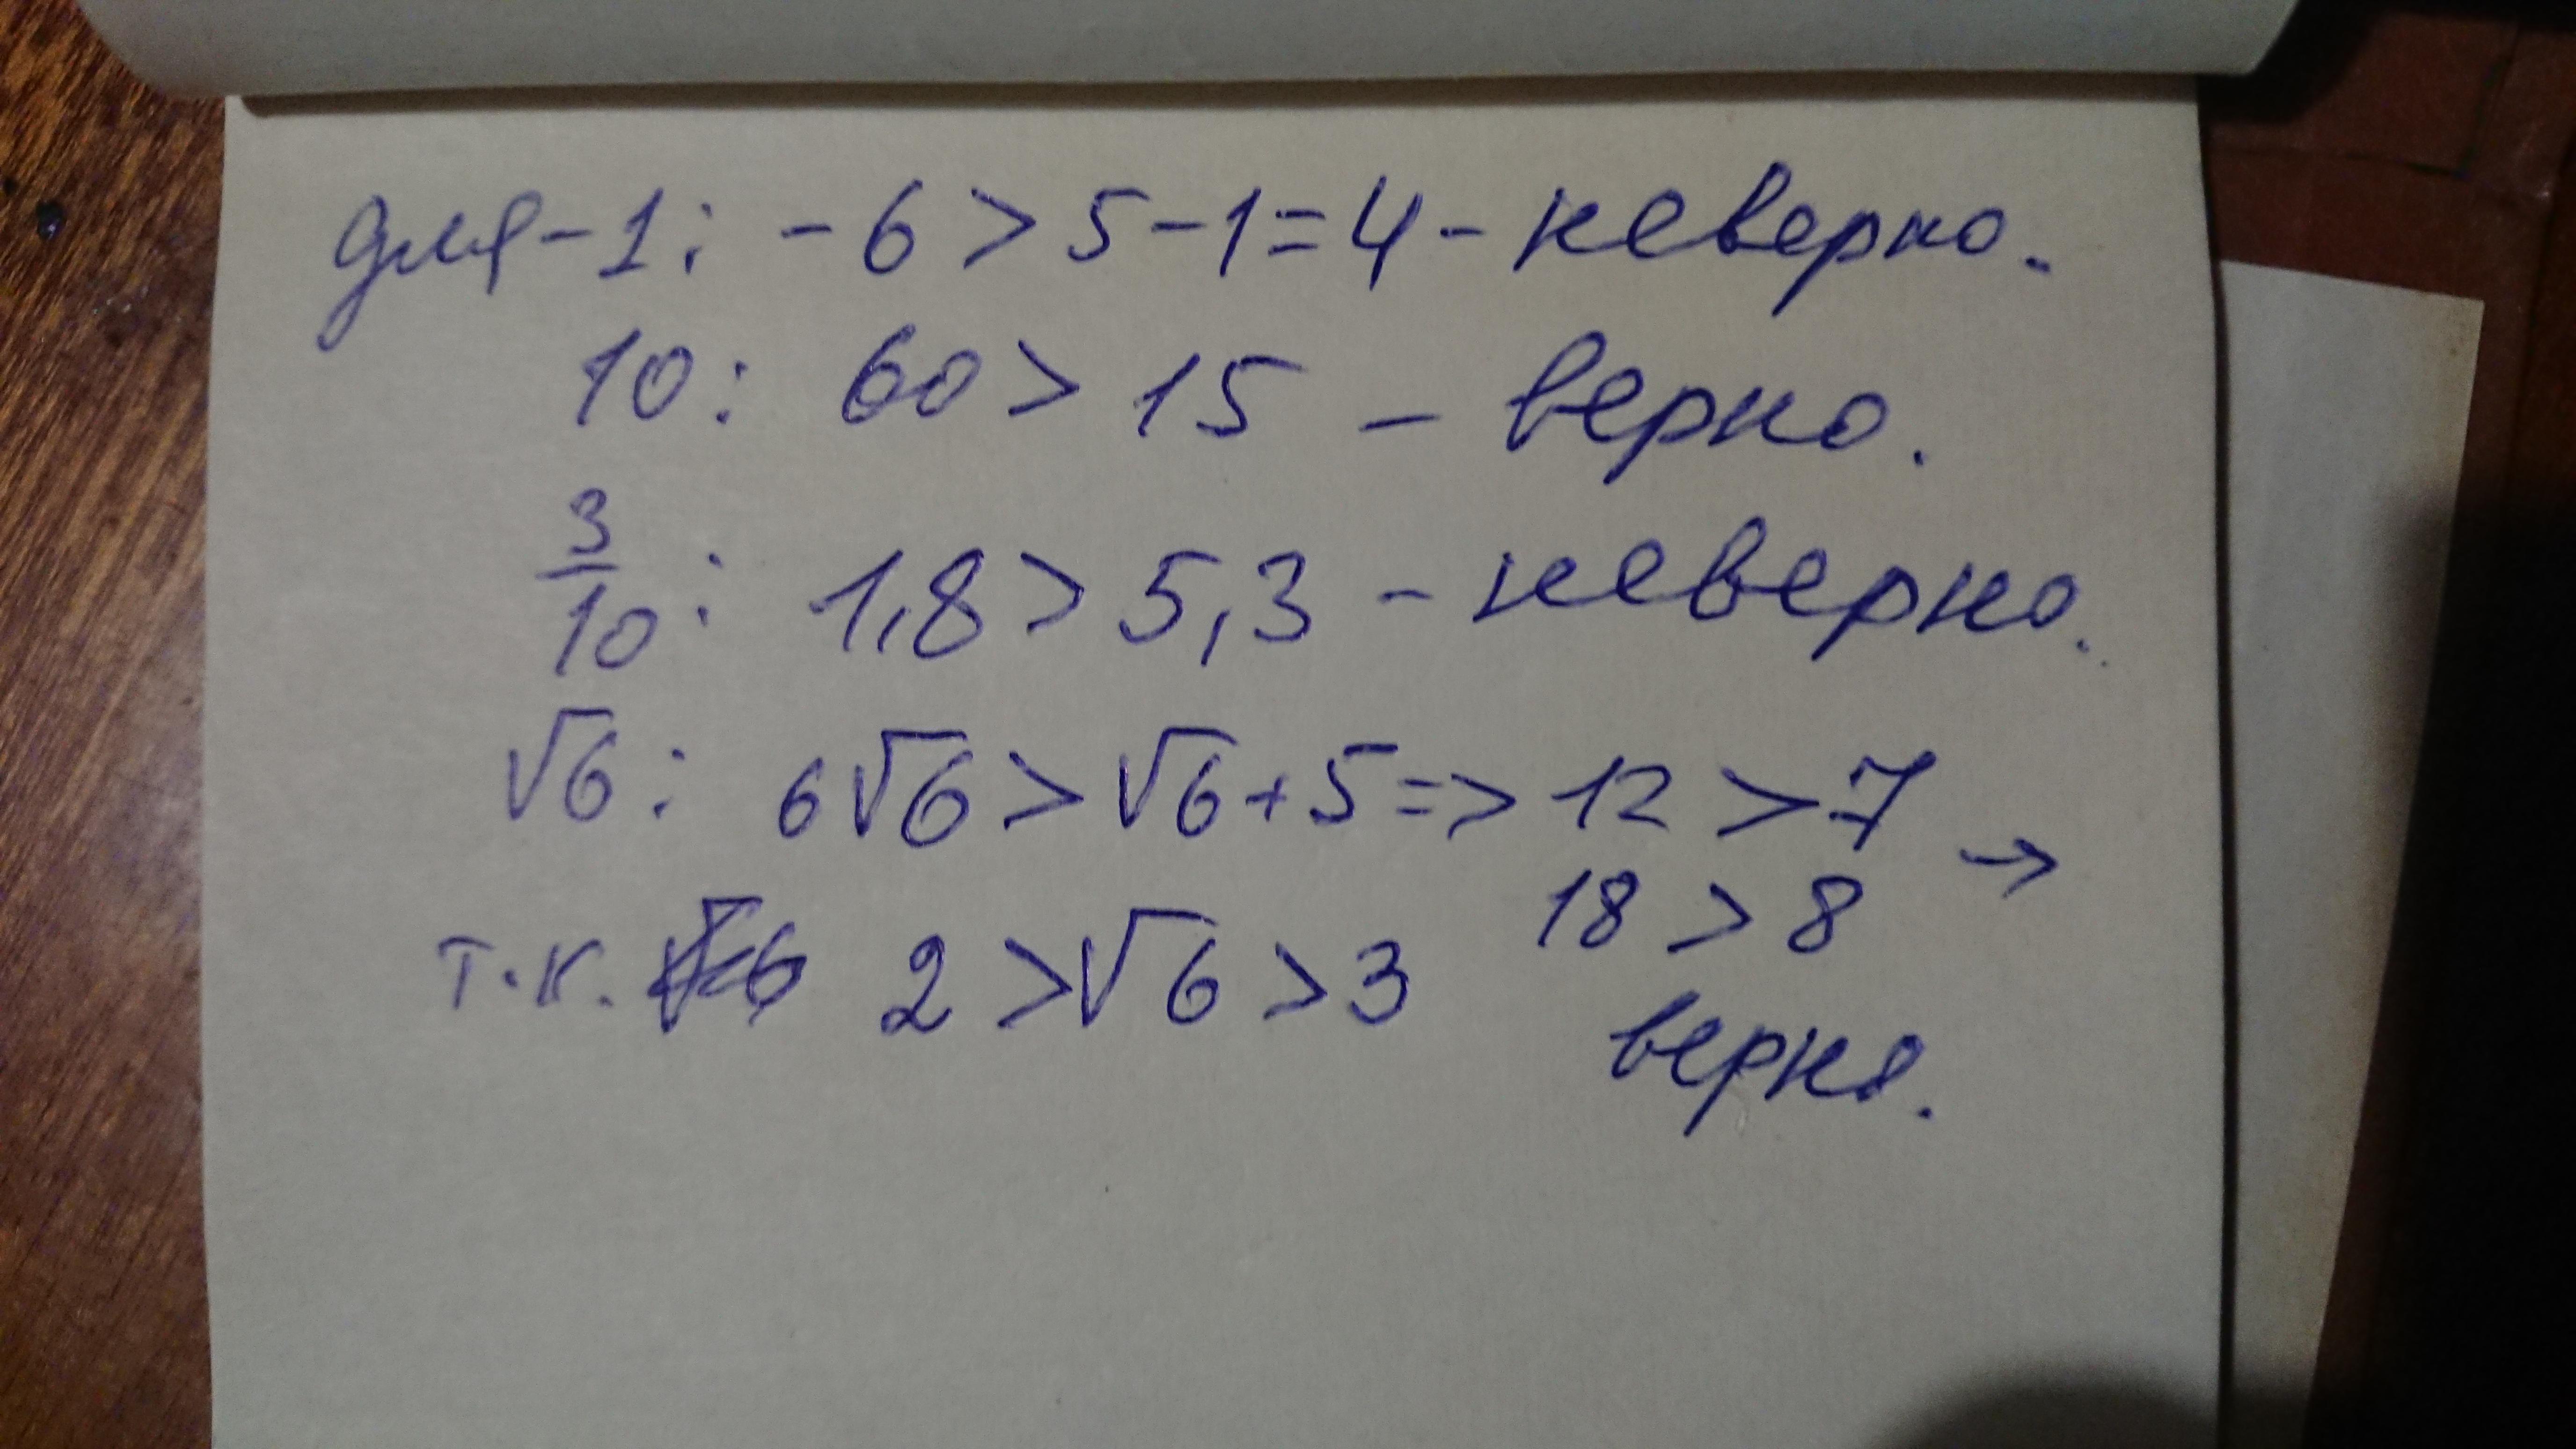 для -1: -6 > 5 - 1 = 4 - неверно.
10: 60 > 15 - верно.
3/10: 1,8 > 5,3 - неверно.
√6: 6√6 > √6 + 5 => 12 > 7 →
18 > 8
т.к. 2 > √6 > 3
верно.